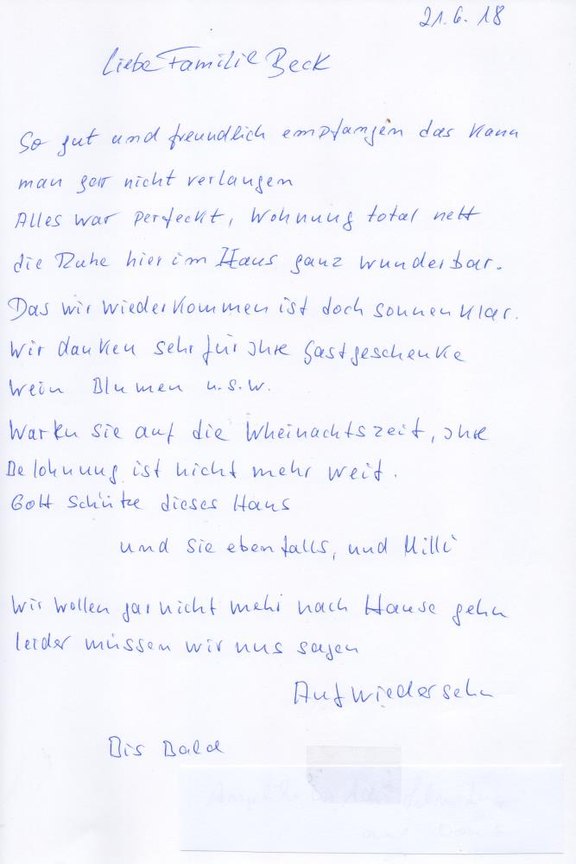 21.6.18
Liebe Familie Beck
So gut und freundlich empfangen das kann
man gar nicht verlangen
Alles war perfeckt, Wohnung total nett
die Ruhe hier im Haus ganz wunderbar.
Das wir wiederkommen ist doch sonnenklar.
Wir danken sehr für Ihre Gastgeschenke
Wein Blumen u.s.w.
Warten Sie auf die Wheinachtszeit, Ihre
Belohnung ist nicht mehr weit.
Gott schütze dieses Haus
und Sie ebenfalls, und Milli
Wir wollen gar nicht mehr nach Hause gehn
leider müssen wir uns sagen
Aufwiedersehn
Bis Bald